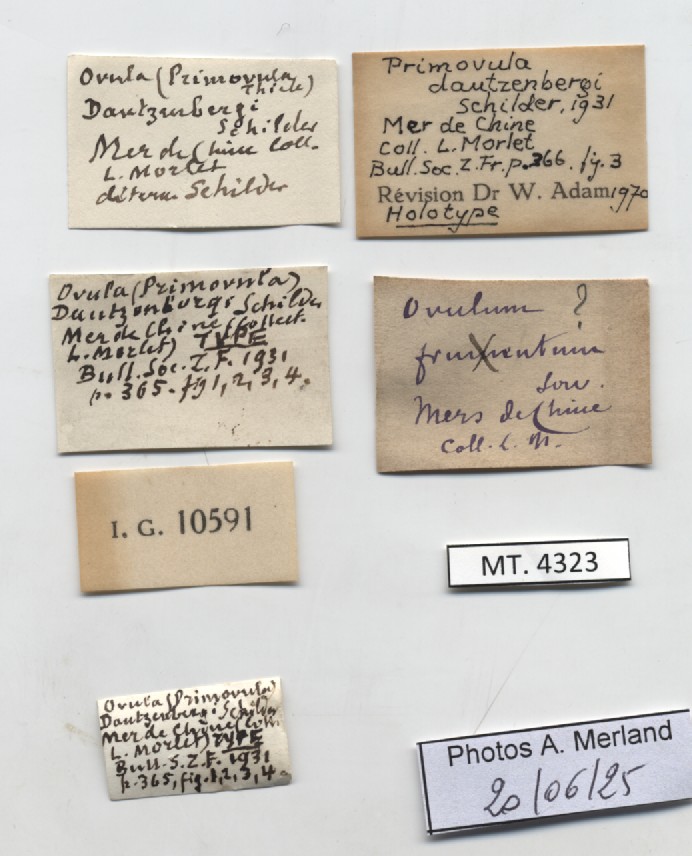 Ovula (Primovula
Thiele)
Dautzenbergi
Schilder
Mer de Chine Coll.
L. Morlet
déterm. Schilder
Primovula
dautzenbergi
Schilder, 1931
Mer de Chine
Coll. L. Morlet
Bull. Soc. Z. Fr. p. 366. fig. 3
Révision Dr W. Adam 1970
Holotype
Ovula (Primovula)
Dautzenbergi Schilder
Mer de Chine (Collect.
L. Morlet) TYPE
Bull. Soc. Z. F. 1931
p. 365. fig 1, 2, 3, 4.
Ovulum ?
frumentum
Sow.
Mers de Chine
Coll. L. M.
I. G. 10591
MT. 4323
Ovula (Primovula)
Dautzenbergi Schilder
Mer de Chine (Coll.
L. Morlet) TYPE
Bull. S. Z. F. 1931
p. 365, fig. 1, 2, 3, 4.
Photos A. Merland
20/06/25